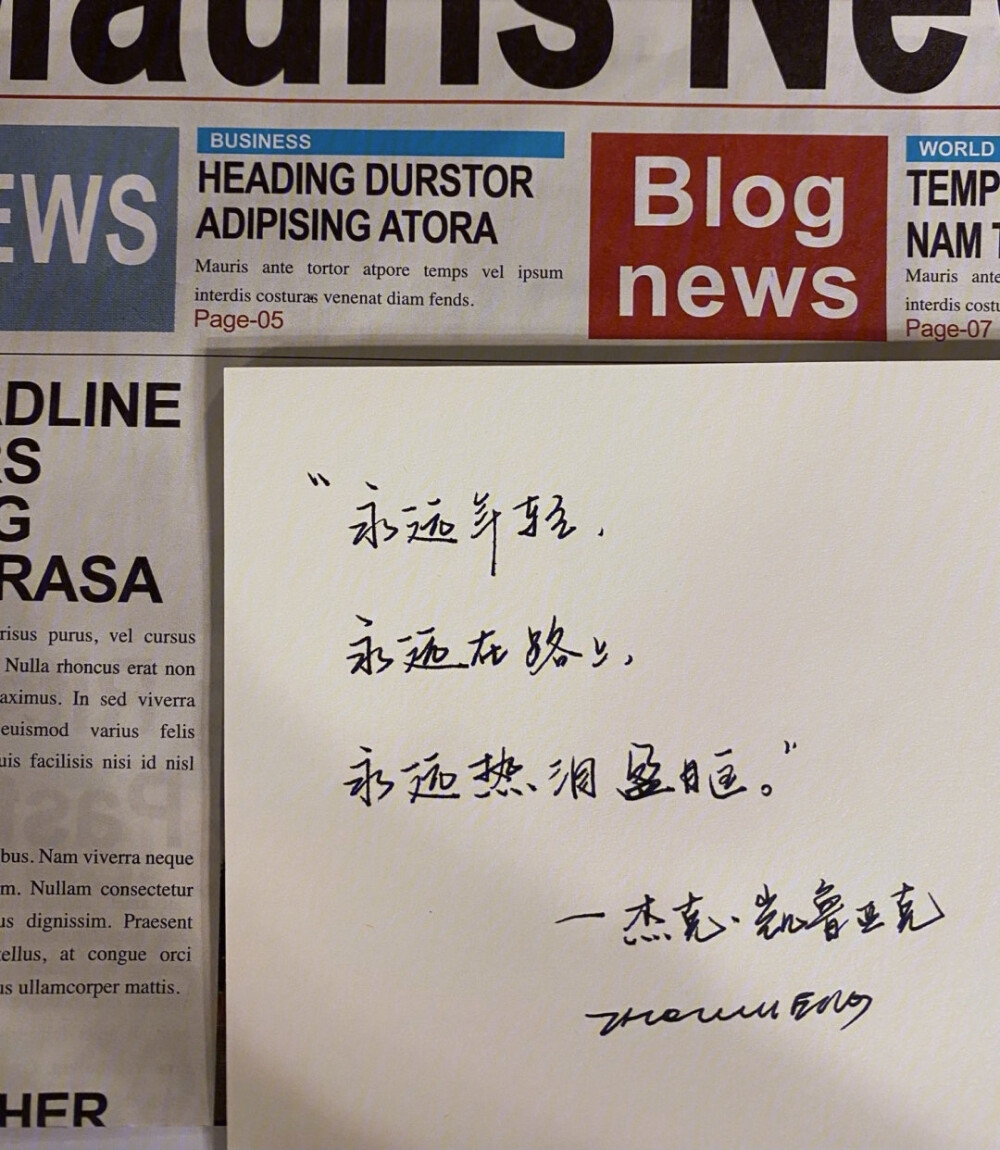 Mauris Ne
EWS
BUSINESS
HEADING DURSTOR
ADIPISING ATORA
Mauris ante tortor atpore temps vel ipsum
interdis costuras venenat diam fends.
Page-05
Blog
news
WORLD
TEMP
NAM T
Mauris ante
interdis costu
Page-07
ADLINE
RS
G
RASA
risus purus, vel cursus
Nulla rhoncus erat non
aximus. In sed viverra
euismod varius felis
uis facilisis nisi id nisl
bus. Nam viverra neque
m. Nullam consectetur
us dignissim. Praesent
tellus, at congue orci
us ullamcorper mattis.
HER
“永远年轻,
永远在路上,
永远热泪盈眶。”
—杰克·凯鲁亚克